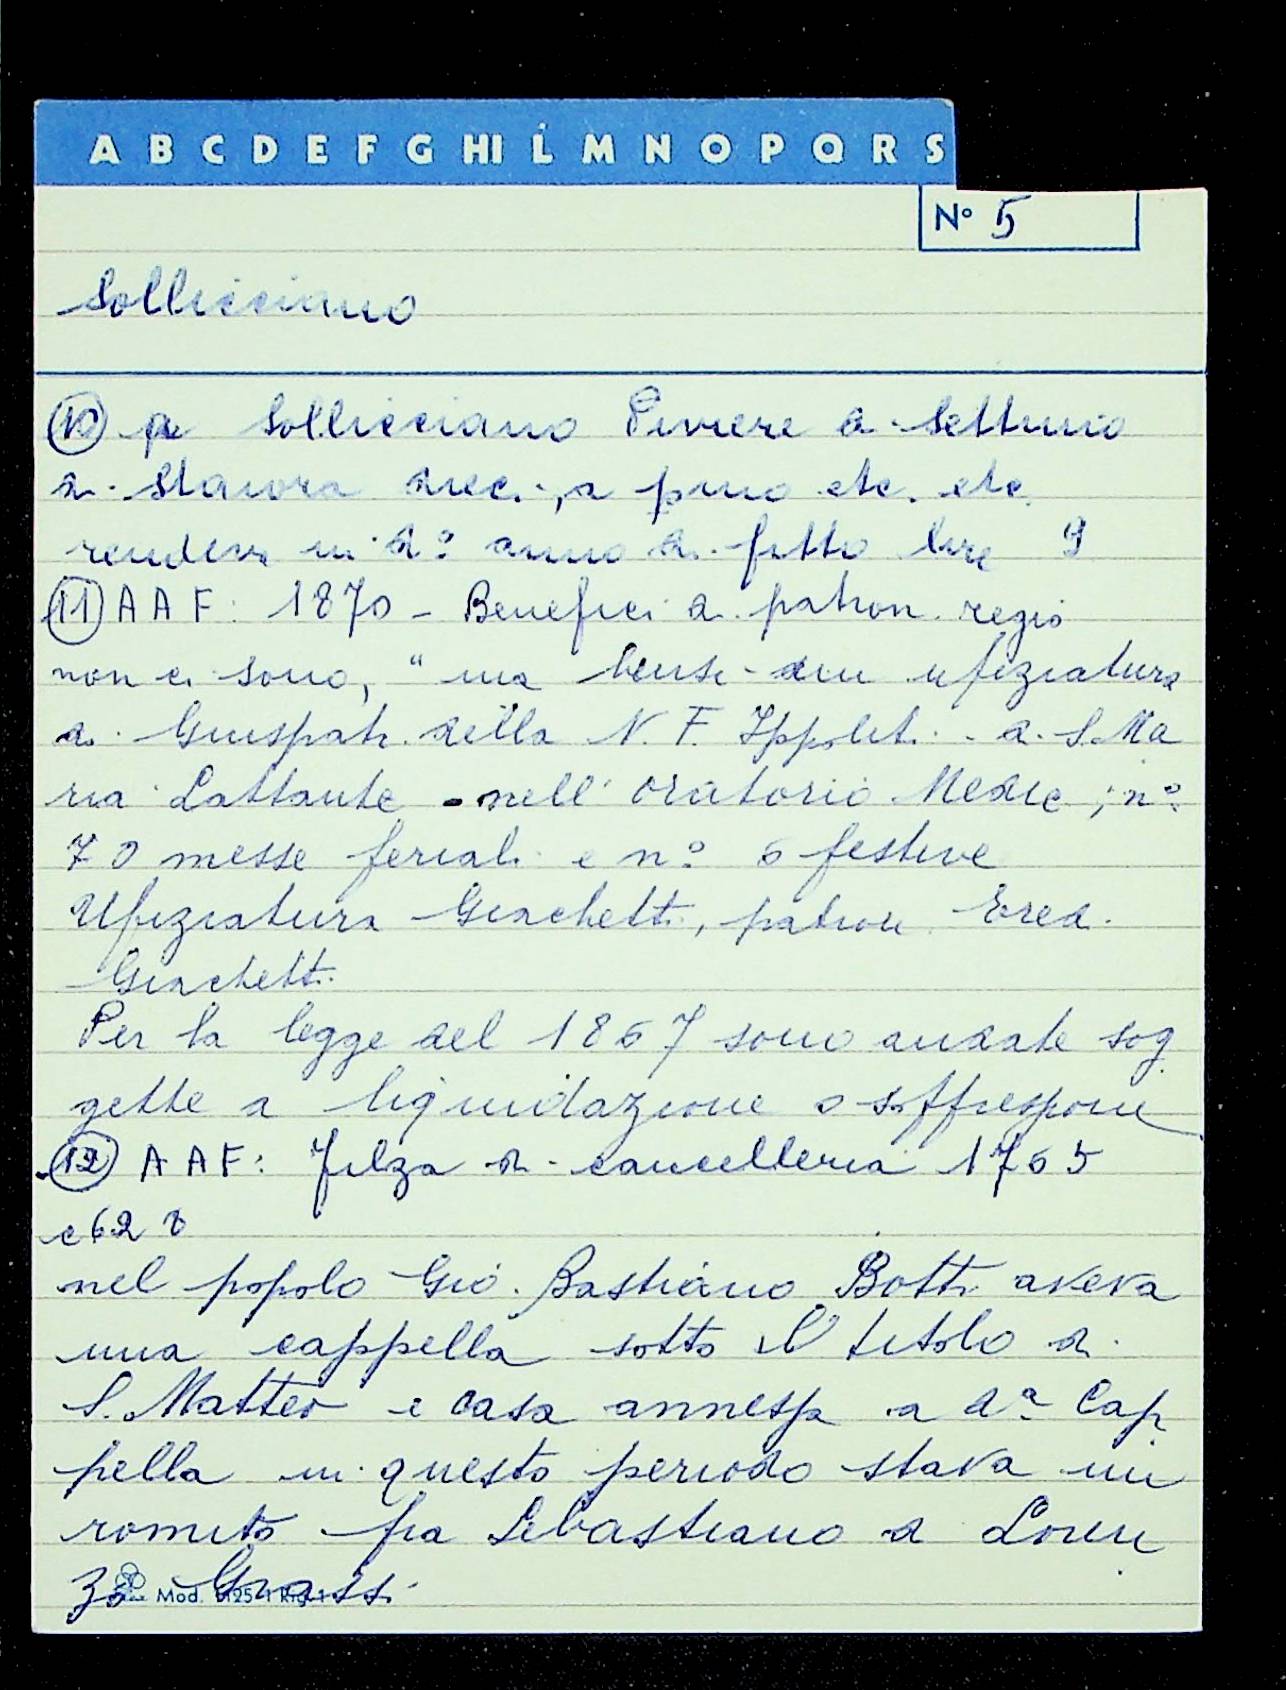 A B C D E F G HI L M N O P Q R S
N° 5
Sollicciano
10 a Sollicciano Piviere a Settimo
di staiora dieci, a pino etc. etc.
rendeva in d° anno di fitto lire 9
11 A A F: 1870 - Benefici di patron. regio
non ci sono, " ma bensì un ufiziatura
di Giuspatr. della N. F. Ippoliti - di S. Ma
ria Lattante - nell' oratorio Medic ; n°
70 messe feriali e n° 6 festive
Ufiziatura Giachetti, patron Ered.
Giachetti.
Per la legge del 1867 sono andate sog
gette a liquidazione o soffressione
12 A A F: Filza di cancelleria 1765
c 62
nel popolo Gio. Bastiano Botti aveva
una cappella sotto il titolo di
S. Matteo e casa annessa a da Cap
pella in questo periodo stava un
romito fra Sebastiano di Loren
zo Grassi.
Mod.